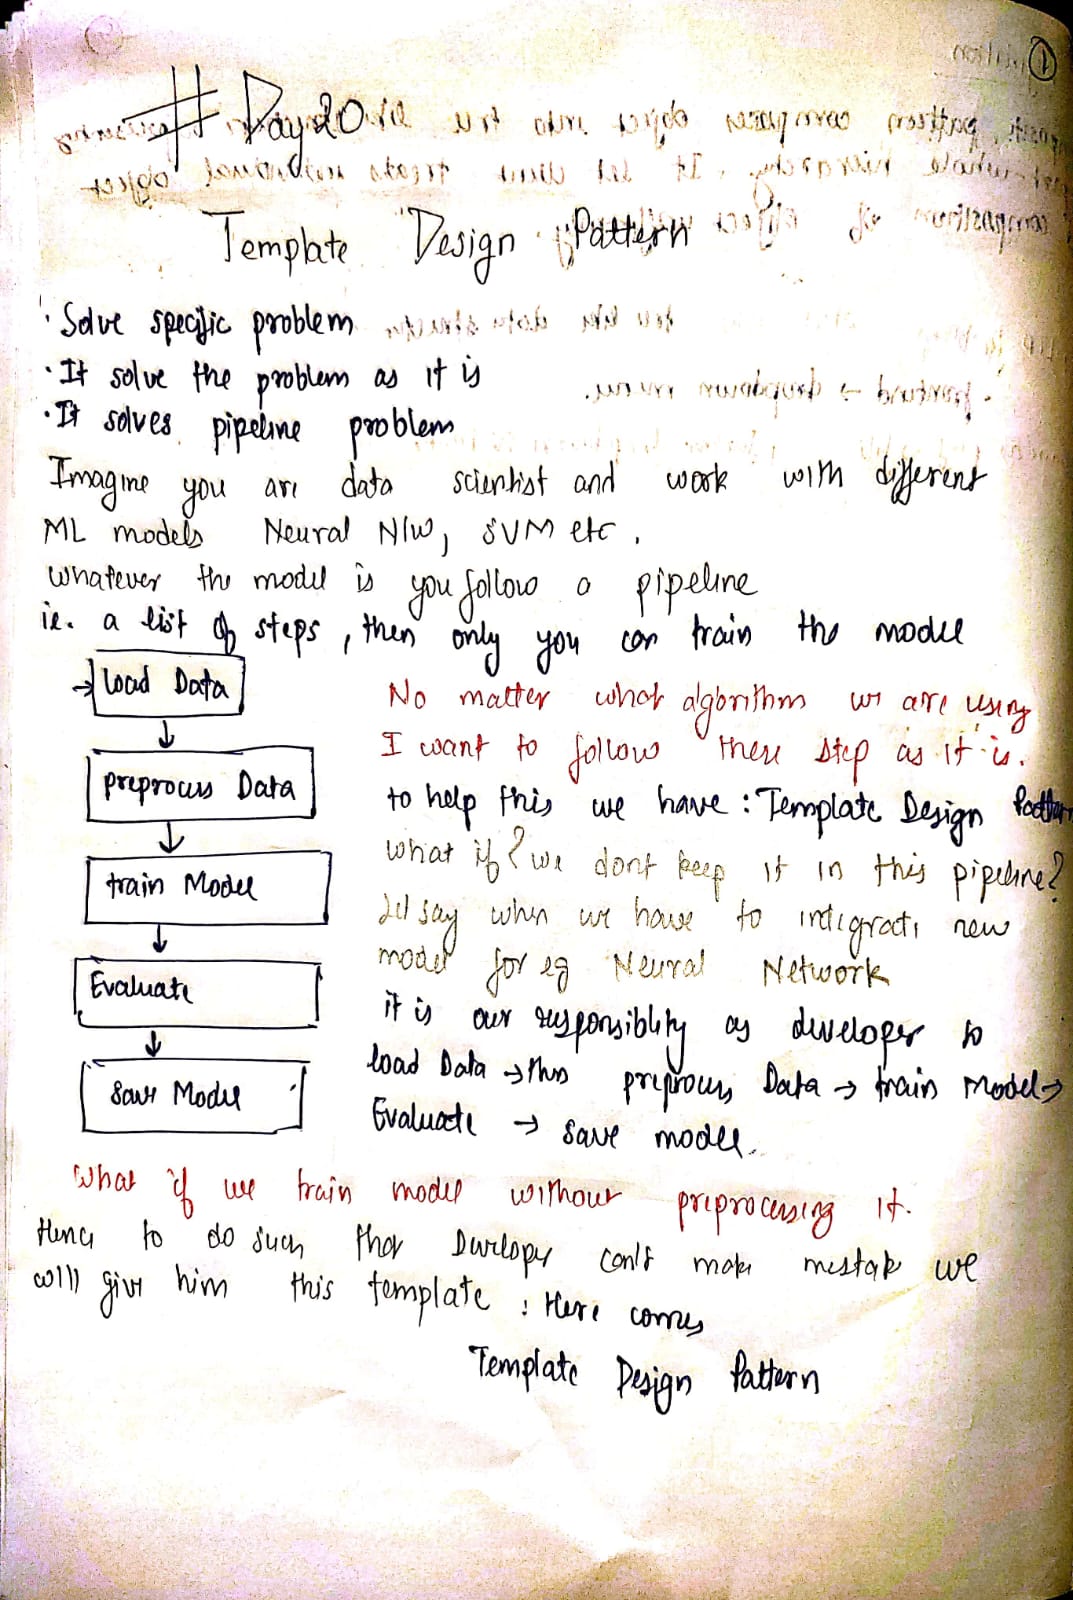 # Day20
Template Design Pattern
· Solve specific problem
· It solve the problem as it is
· It solves pipeline problem
Imagine you are data scientist and work with different
ML models Neural N/W, SVM etc.
whatever the model is you follow a pipeline
ie. a list of steps, then only you can train the model
→ load Data
↓
preprocess Data
↓
train Model
↓
Evaluate
↓
Save Model
No matter what algorithm we are using
I want to follow these step as it is.
to help this we have : Template Design Pattern
what if? we dont keep it in this pipeline?
let say when we have to integrate new
model for eg Neural Network
it is our responsiblity as developer to
load Data → then preprocess Data → train Model →
Evaluate → save model.
What if we train model without preprocessing it.
Hence to do such that Developer can't make mistake we
will give him this template : Here comes
Template Design Pattern